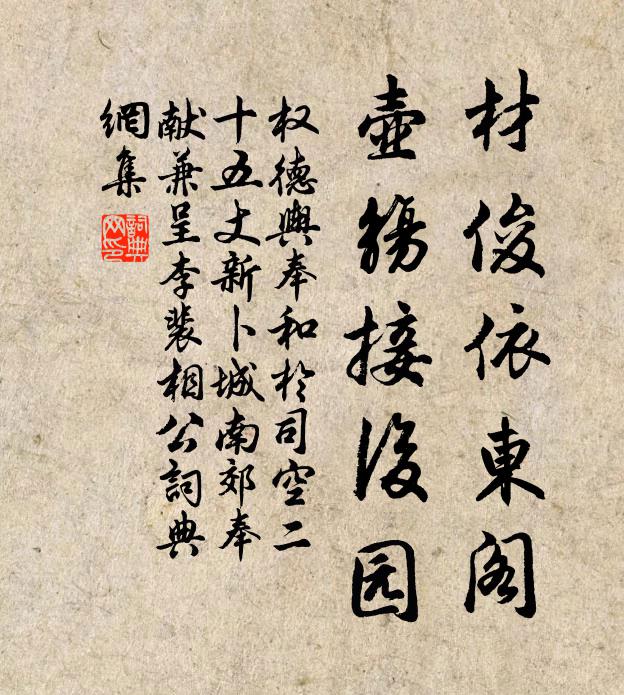 材俊依東阁
壶觴接後园
权德輿奉和於司空二
十五丈新卜城南郊奉
献兼呈李裴相公詞典
網集
詞典网印